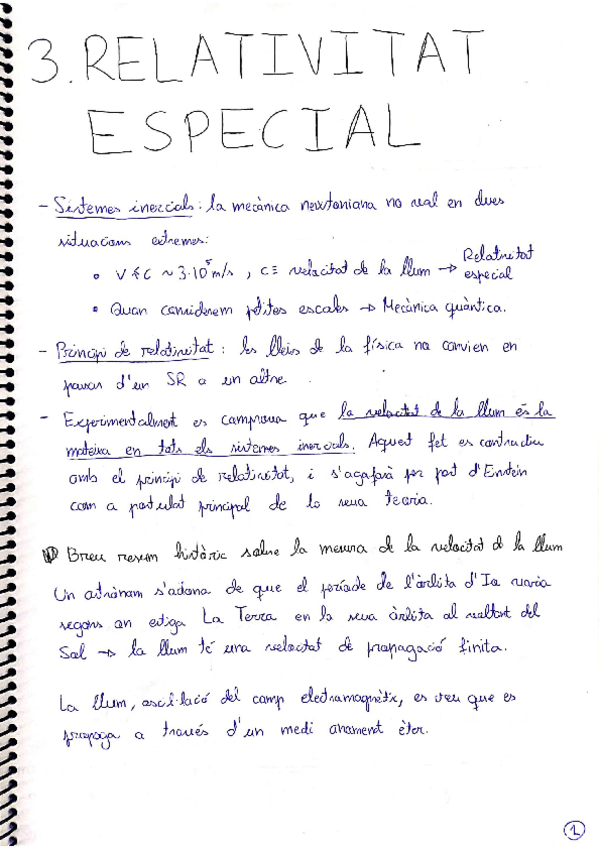 3. RELATIVITAT
ESPECIAL
- Sistemes inercials: la mecànica newtoniana no val en dues
situacions extremes:
• V ≮ C ~ 3·10⁵ m/s, c ≡ velocitat de la llum → Relativitat especial
• Quan considerem petites escales → Mecànica quàntica.
- Principi de relativitat: les lleis de la física no canvien en
passar d'un SR a un altre.
- Experimentalment es comprova que la velocitat de la llum és la
mateixa en tots els sistemes inercials. Aquest fet es contradiu
amb el principi de relativitat, i s'agafarà per part d'Einstein
com a postulat principal de la seua teoria.
Breu resum històric sobre la mesura de la velocitat de la llum
Un astrònom s'adona de que el període de l'òrbita d'Io varia
segons on estiga La Terra en la seua òrbita al voltant del
Sol → la llum té una velocitat de propagació finita.
La llum, oscil·lació del camp electromagnètic, es creu que es
propaga a través d'un medi anomenat èter.
1